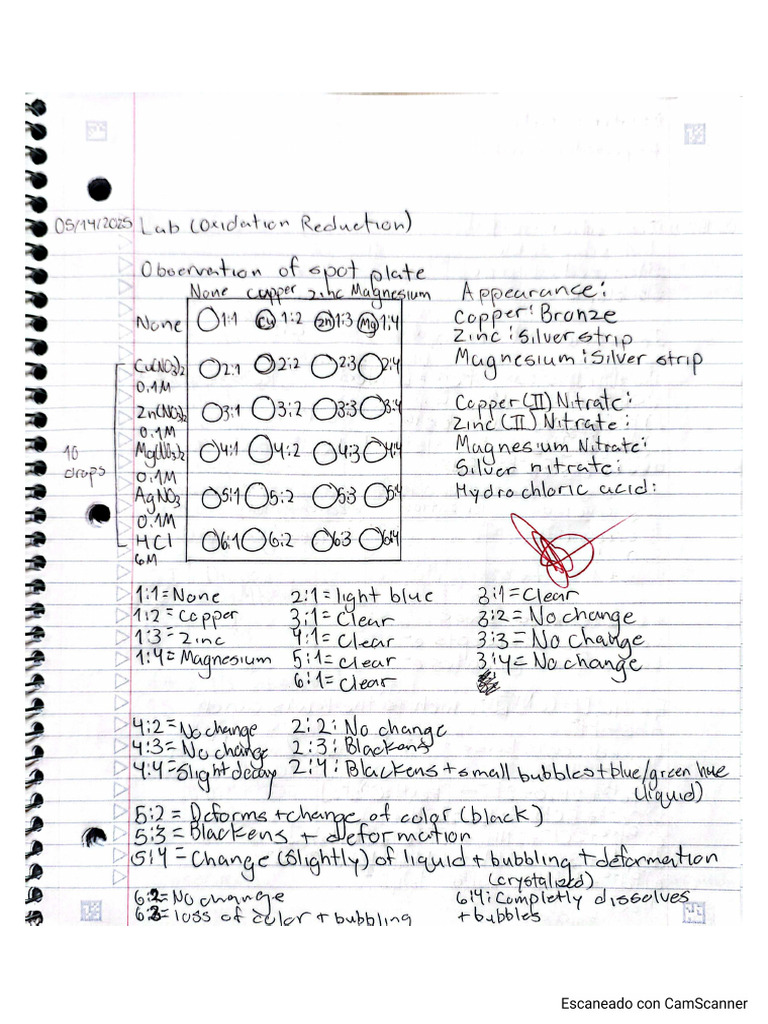 05/14/2025 Lab (Oxidation Reduction)
Observation of spot plate
None Copper zinc Magnesium
None 1:1 Cu 1:2 Zn 1:3 Mg 1:4
Cu(NO3)2 0.1M 2:1 2:2 2:3 2:4
Zn(NO3)2 0.1M 3:1 3:2 3:3 3:4
Mg(NO3)2 0.1M 4:1 4:2 4:3 4:4
AgNO3 0.1M 5:1 5:2 5:3 5:4
HCl 6M 6:1 6:2 6:3 6:4
10 drops
Appearance:
Copper: Bronze
Zinc: Silver strip
Magnesium: Silver strip
Copper (II) Nitrate:
Zinc (II) Nitrate:
Magnesium Nitrate:
Silver nitrate:
Hydrochloric acid:
1:1 = None 2:1 = light blue 3:1 = Clear
1:2 = Copper 3:1 = Clear 3:2 = No change
1:3 = Zinc 4:1 = Clear 3:3 = No Change
1:4 = Magnesium 5:1 = clear 3:4 = No change
6:1 = clear
4:2 = No change 2:2: No change
4:3 = No change 2:3: Blackens
4:4 = Slight decay 2:4: Blackens + small bubbles + blue/green hue
(liquid)
5:2 = Deforms + change of color (black)
5:3 = Blackens + deformation
5:4 = Change (slightly) of liquid + bubbling + deformation
(crystalized)
6:2 = No change 6:4: Completly dissolves
6:3 = loss of color + bubbling + bubbles
Escaneado con CamScanner